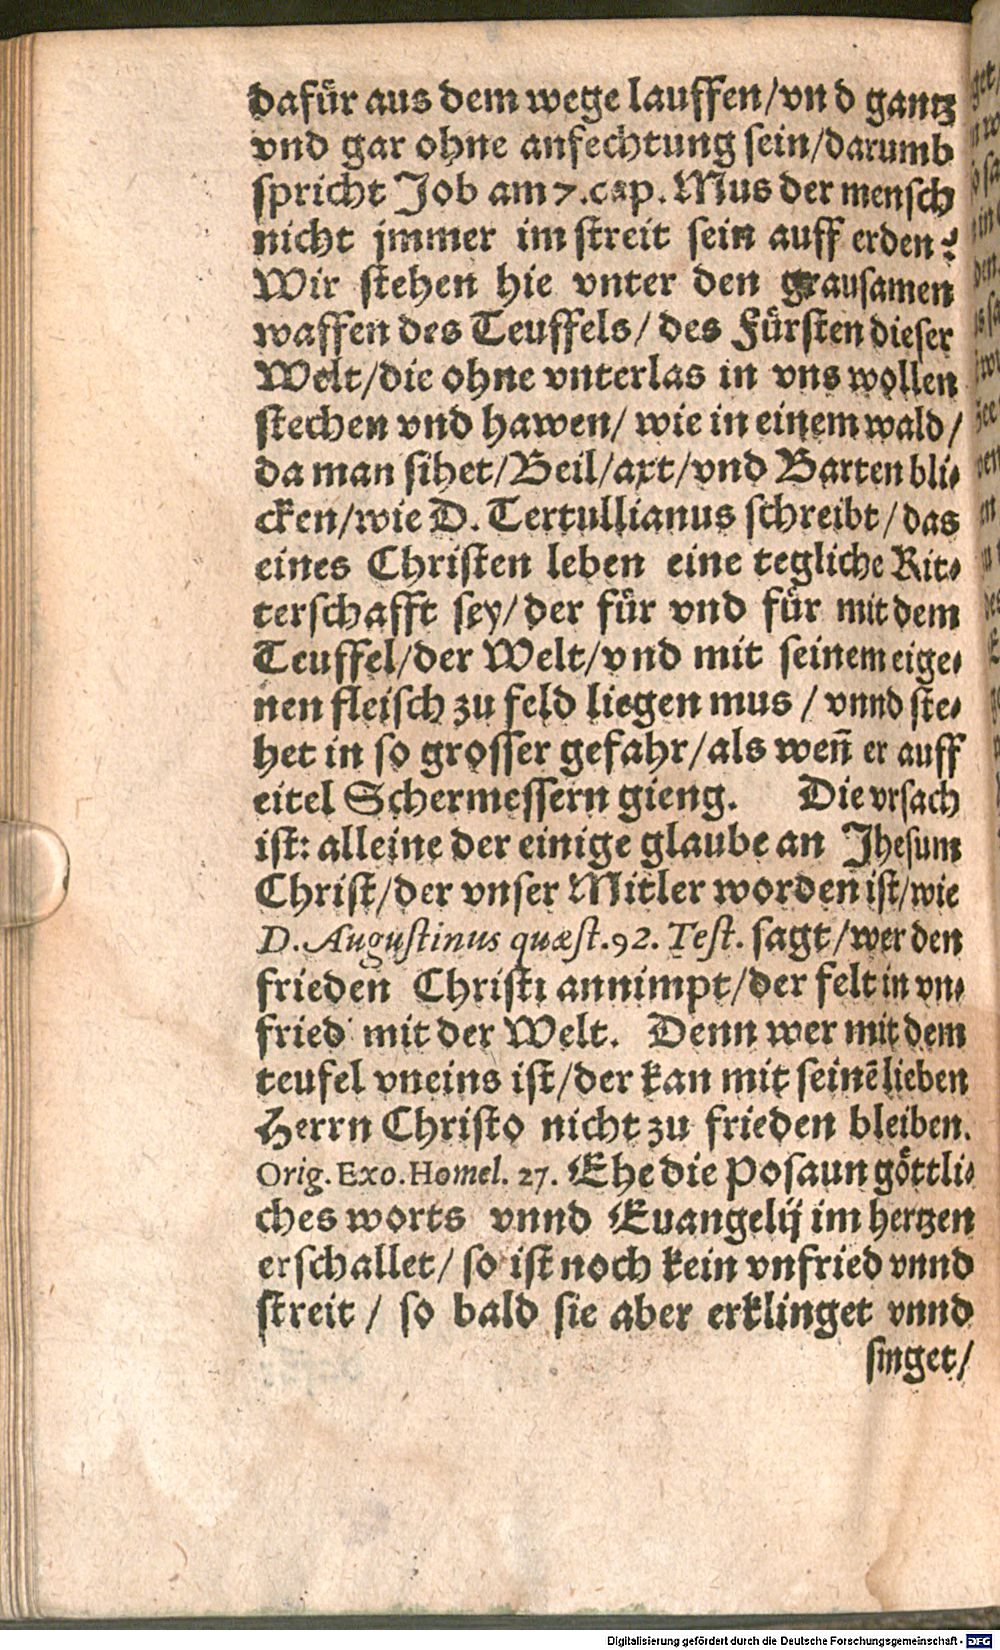 dafür aus dem wege lauffen/vnd gantz
vnd gar ohne anfechtung sein/darumb
spricht Job am 7. cap. Mus der mensch
nicht jmmer im streit sein auff erden?
Wir stehen hie vnter den grausamen
waffen des Teuffels/ des Fürsten dieser
Welt/die ohne vnterlas in vns wollen
stechen vnd hawen/ wie in einem wald/
da man sihet/Beil/axt/vnd Barten bli⸗
cken/wie D. Tertullianus schreibt/das
eines Christen leben eine tegliche Rit⸗
terschafft sey/ der für vnd für mit dem
Teuffel/der Welt/vnd mit seinem eige⸗
nen fleisch zu feld liegen mus / vnnd ste⸗
het in so grosser gefahr/als weñ er auff
eitel Schermessern gieng. Die vrsach
ist: alleine der einige glaube an Jhesum
Christ/der vnser Mitler worden ist/wie
D. Augustinus quæst. 92. Test. sagt/wer den
frieden Christi annimpt/der felt in vn⸗
fried mit der Welt. Denn wer mit dem
teufel vneins ist/der kan mit seinē lieben
Herrn Christo nicht zu frieden bleiben.
Orig. Exo. Homel. 27. Ehe die Posaun göttli⸗
ches worts vnnd Euangelij im hertzen
erschallet/ so ist noch kein vnfried vnnd
streit / so bald sie aber erklinget vnnd
singet/
Digitalisierung gefördert durch die Deutsche Forschungsgemeinschaft - DFG